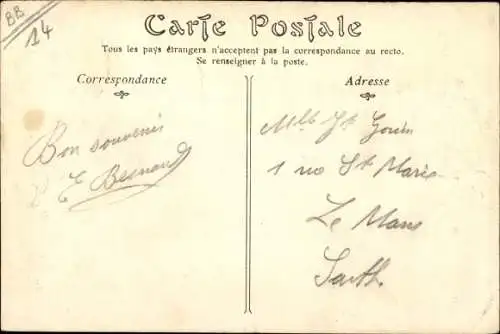 BB
14
Carte Postale
Tous les pays étrangers n'acceptent pas la correspondance au recto.
Se renseigner à la poste.
Correspondance
Bon souvenir
E Besnard
Adresse
Mlle Gouin
1 rue Ste Marie
Le Mans
Sarth.